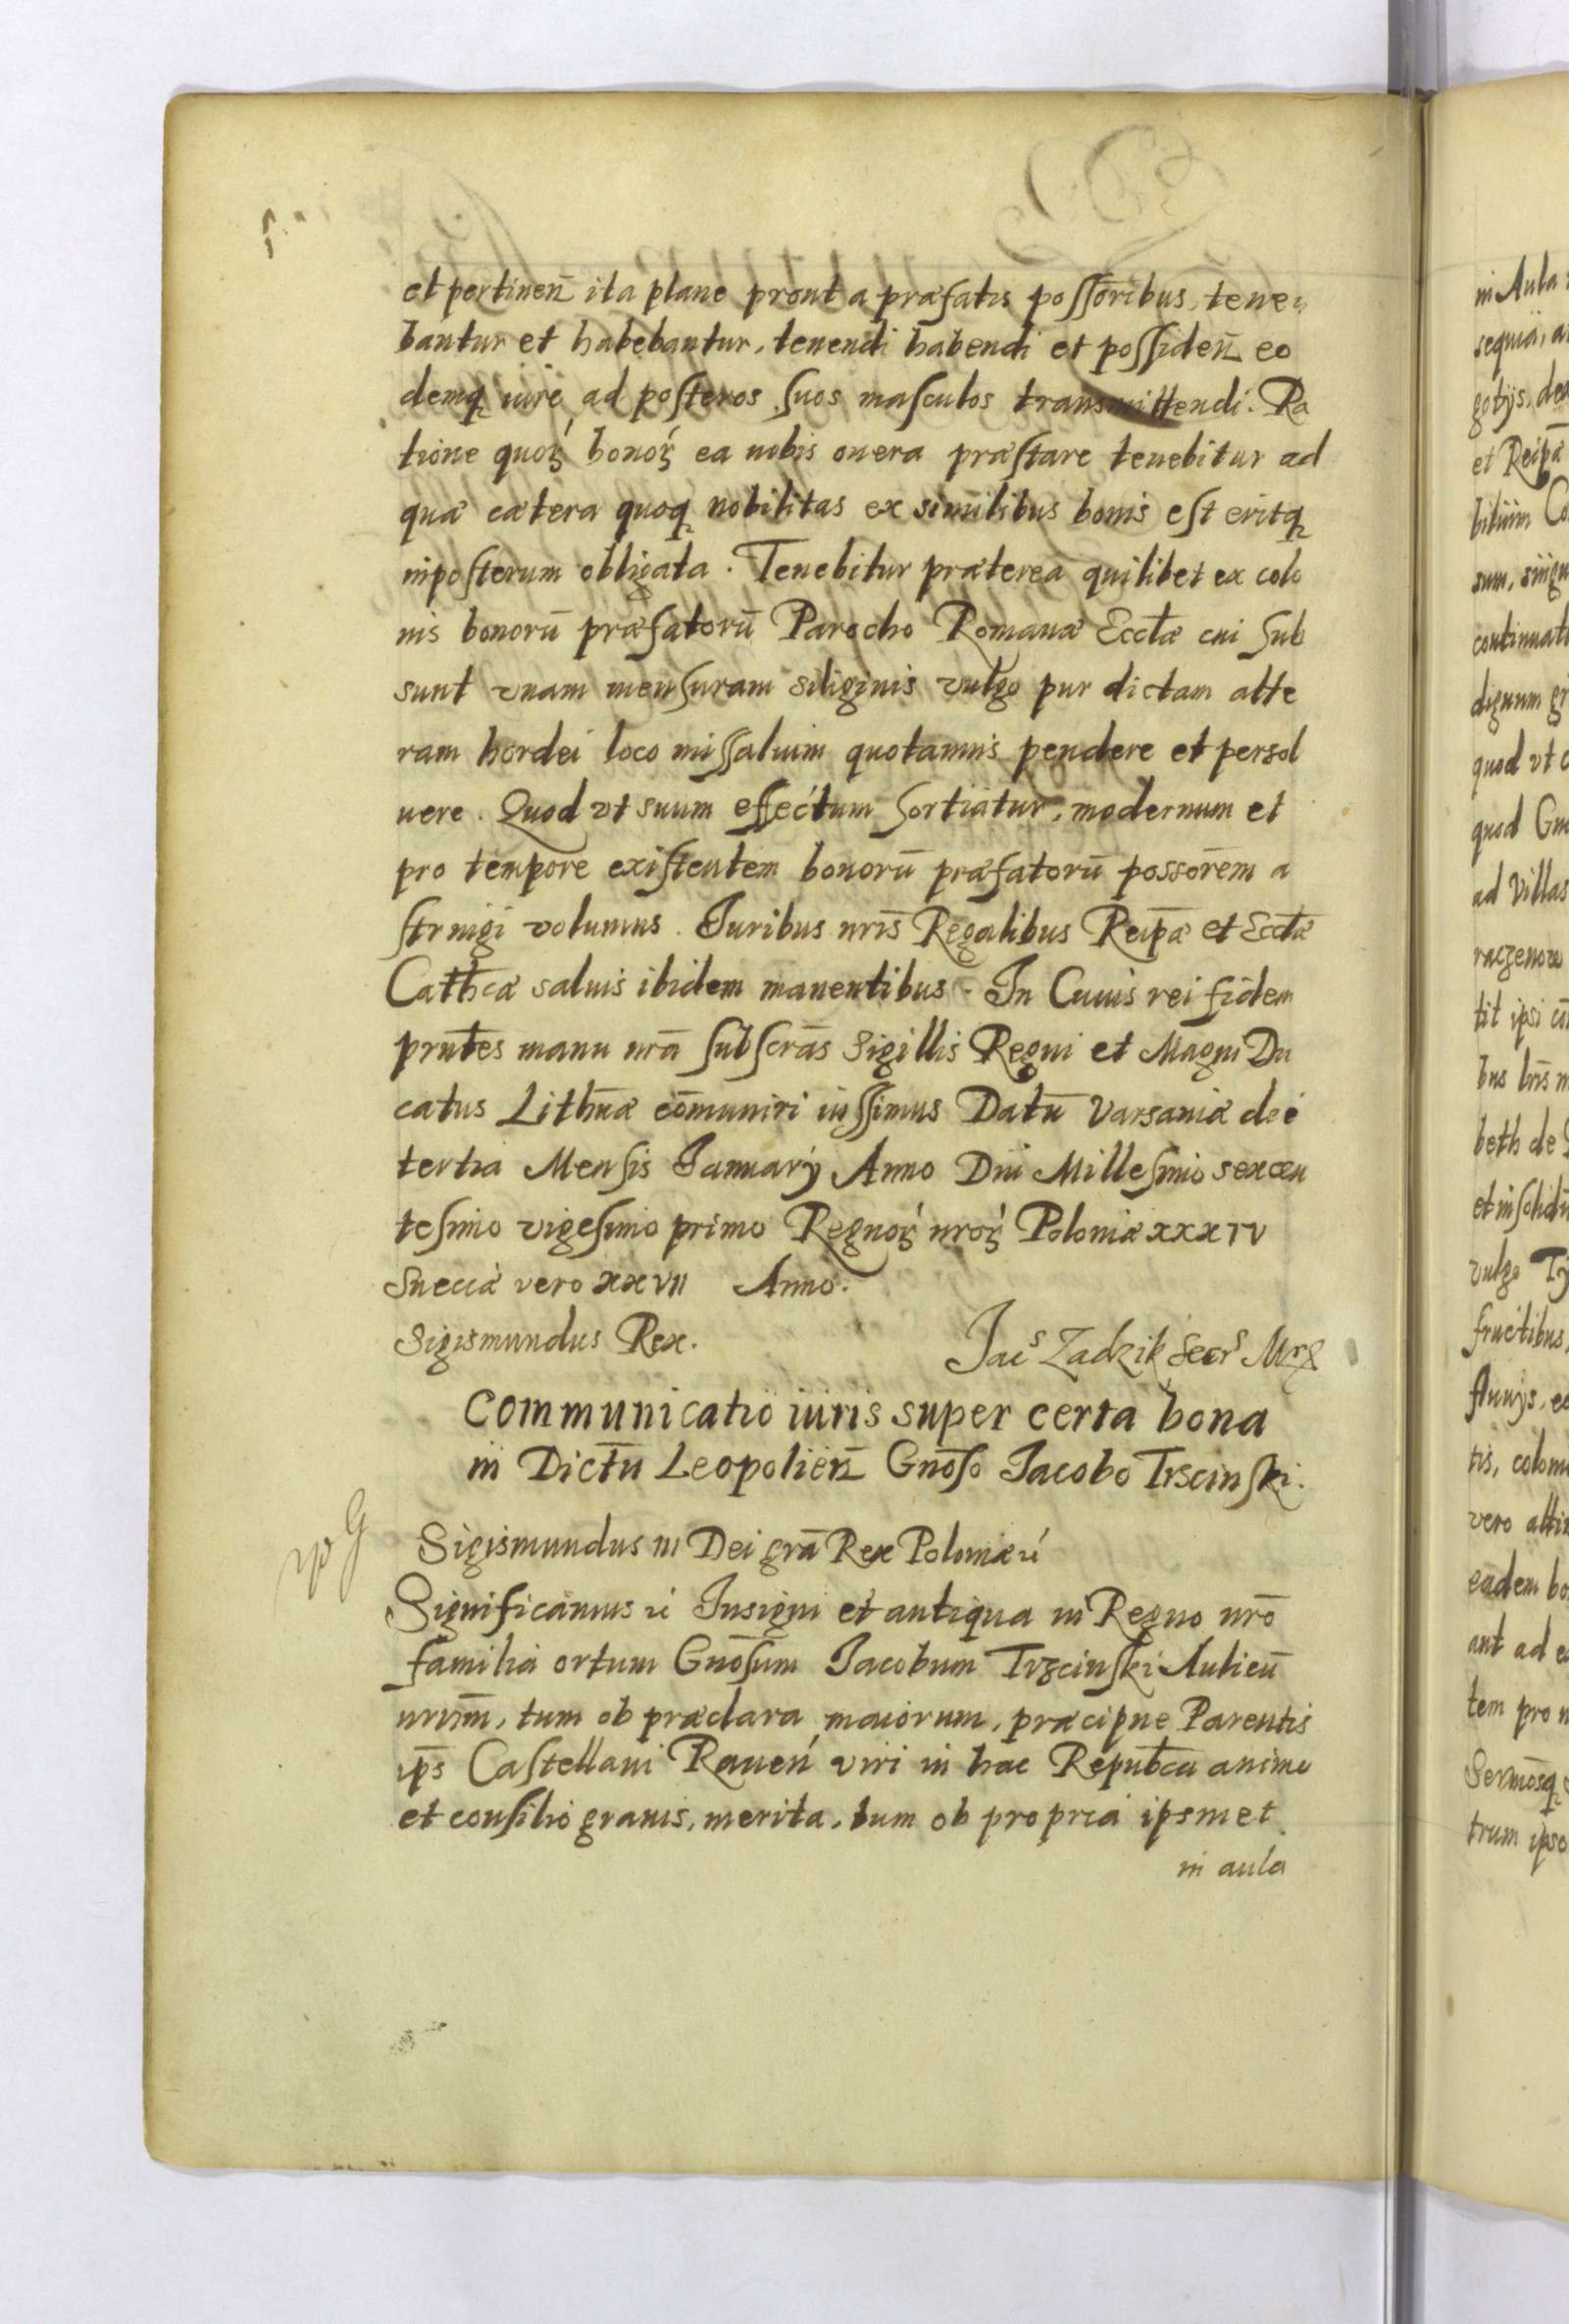 et pertinen̄ ita plane prout a præfatis possoribus, tene
bantur et habebantur, tenendi habendi et possiden̄ eo
demq iure ad posteros suos masculos transmittendi. Ra
tione quoꝝ bonoꝝ ea nobis onera præstare tenebitur ad
quæ cætera quoq nobilitas ex similibus bonis est eritq
inposterum obligata. Tenebitur præterea quilibet ex colo
nis bonorū præfatorū Parocho Romanæ Ecctæ cui sub
sunt vnam mensuram siliginis vulgo pur dictam alte
ram hordei loco missalium quotannis pendere et persol
uere. Quod vt suum effectum sortiatur, modernum et
pro tempore existentem bonorū præfatorū possorēm a
stringi volumus. Iuribus nris̄ Regalibus Reipǣ et Ecctæ
Cathcæ saluis ibidem manentibus. In Cuius rei fidem
prntes manu nrā subscrās Sigillis Regni et Magni Du
catus Lithnæ cōmuniri iussimus Datū Varsauiæ dei
tertia Mensis Ianuarij Anno Dni Millesimo sexcen
tesimo vigesimo primo Regnoꝝ nroꝝ Poloniæ xxxiv
Sueciæ vero xxvii Anno.
Sigismundus Rex.
Jacs Zadzik Secrs
Communicatio iuris super certa bona
in Dictū Leopolien̄ Gnōso Jacobo Trscinski.
Sigismundus III Dei grā Rex Poloniæ
Significamus Insigni et antiqua in Regno nrō
familia ortum Gnōsum Jacobum Trzcinski Aulicū
nrum̄, tum ob præclara maiorum, præcipue Parentis
ips̄ Castellani Rauen̄ viri in hac Repubca animo
et consilio grauis, merita, tum ob propria ipsmet
in aula
in Aula
sequia, a
gotijs, de
et Reipǣ
bilium Co
sum, singu
continuat
dignum gr
quod vt
quod Gn
ad Villas
raczenow
tit ipsi
bus
beth de
et insolidū
vulgo
fructibus,
fluuijs, e
tis, colon
vero alti
eadem bo
aut ad e
tem pro
Sermosq
trum ipso